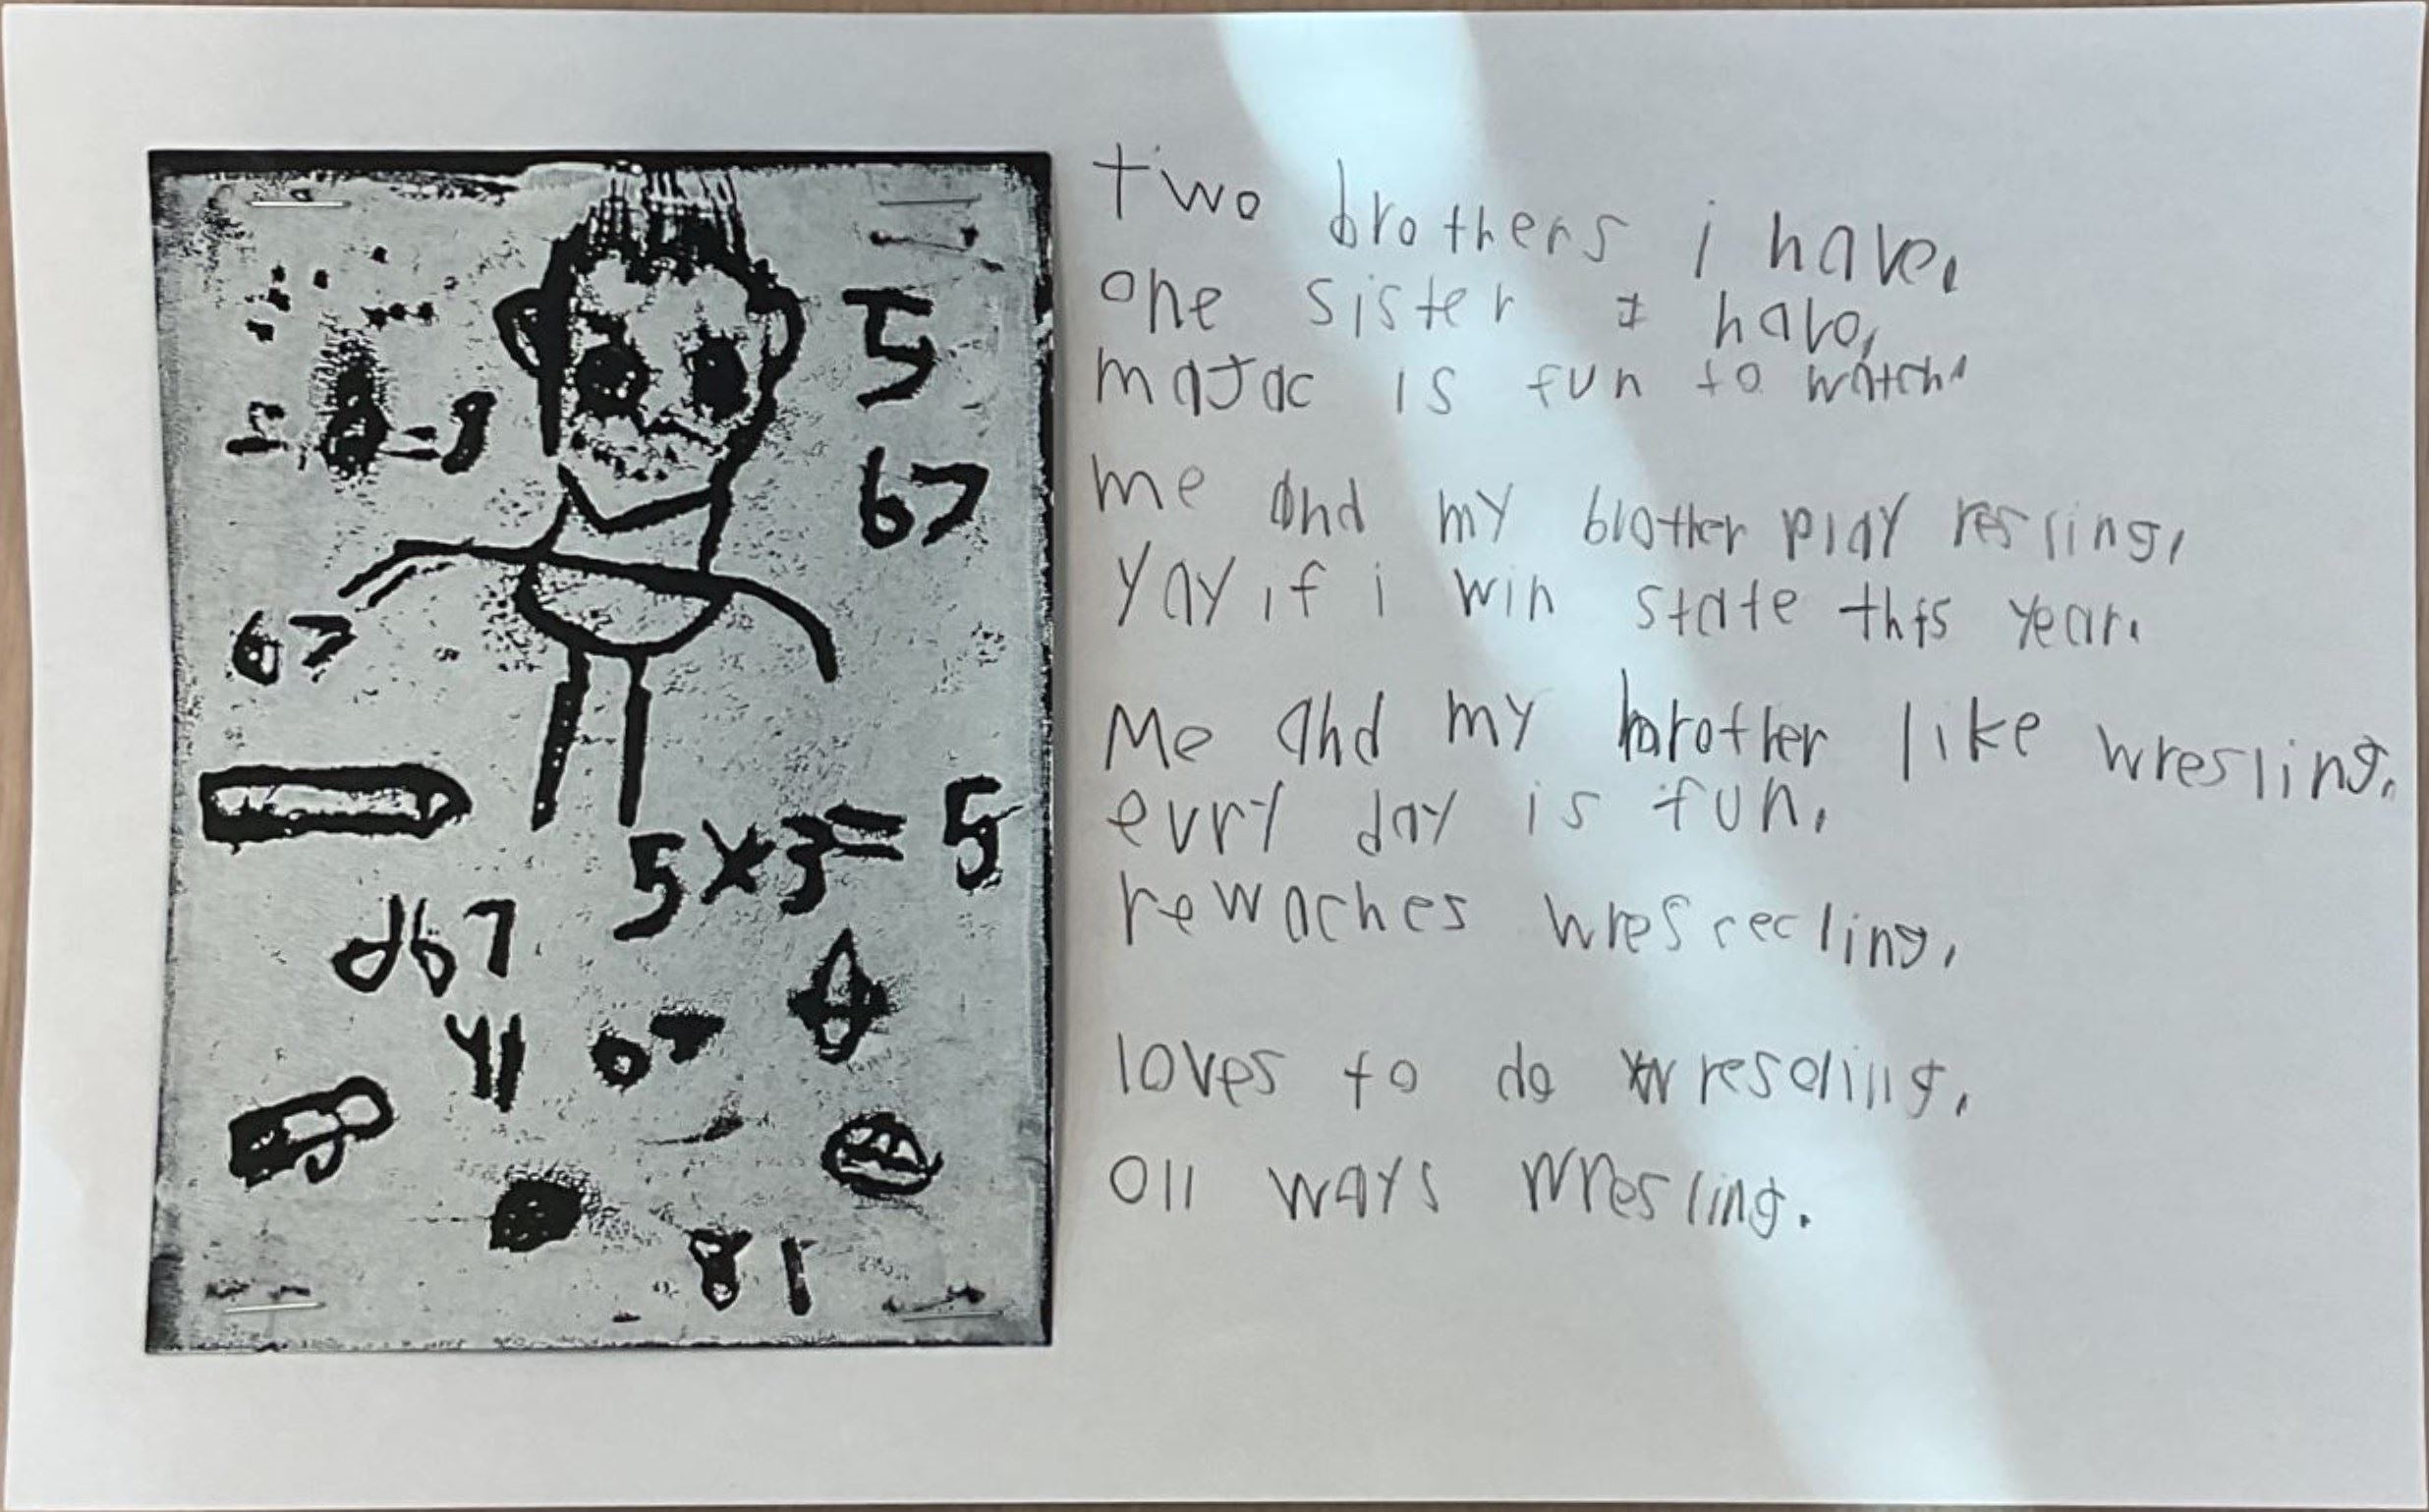 5
67
67
5x3= 5
67
81
two brothers i have,
one sister I have,
majac is fun to watch.
me and my brother play resling,
yay if i win state this year.
Me and my brother like wresling.
evry day is fun.
rewaches wresrecling,
loves to do wresoling,
oll ways wresling.